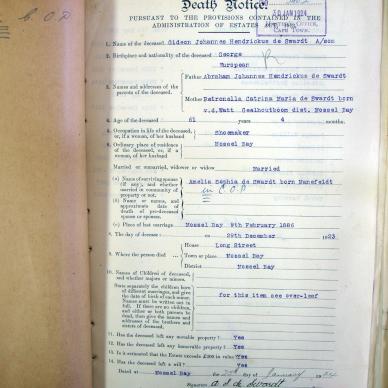 C.O.P
Death Notice
PURSUANT TO THE PROVISIONS CONTAINED IN THE
ADMINISTRATION OF ESTATES ACT,
30 JAN 1924
CAPE TOWN.
1. Name of the deceased Gideon Johannes Hendrickus de Swardt A/son
2. Birthplace and nationality of the deceased George
European
3. Names and addresses of the parents of the deceased.
Father Abraham Johannes Hendrickus de Swardt
Mother Petronella Catrina Maria de Swardt born
v.d.Watt Geelhoutboom dist. Mossel Bay
4. Age of the deceased 61 years 4 months.
5. Occupation in life of the deceased, or, if a woman, of her husband Shoemaker
6. Ordinary place of residence of the deceased, or, if a woman, of her husband Mossel Bay
Married or unmarried, widower or widow Married
(a) Name of surviving spouse (if any), and whether married in community of property or not.
Amelia Sophia de Swardt born Hanefeldt
in C.O.P
(b) Name or names, and approximate date of death of pre-deceased spouse or spouses.
(c) Place of last marriage Mossel Bay 9th February 1886
8. The day of decease 29th December 1923
9. Where the person died
House Long Street
Town or place Mossel Bay
District Mossel Bay
10. Names of Children of deceased, and whether majors or minors.
State separately the children born of different marriages, and give the date of birth of each minor.
for this item see over-leaf
11. Has the deceased left any movable property? Yes
12. Has the deceased left any immovable property? Yes
13. Is it estimated that the Estate exceeds £300 in value Yes
14. Has the deceased left a will? Yes
Dated at Mossel Bay January
Signature A S de Swardt